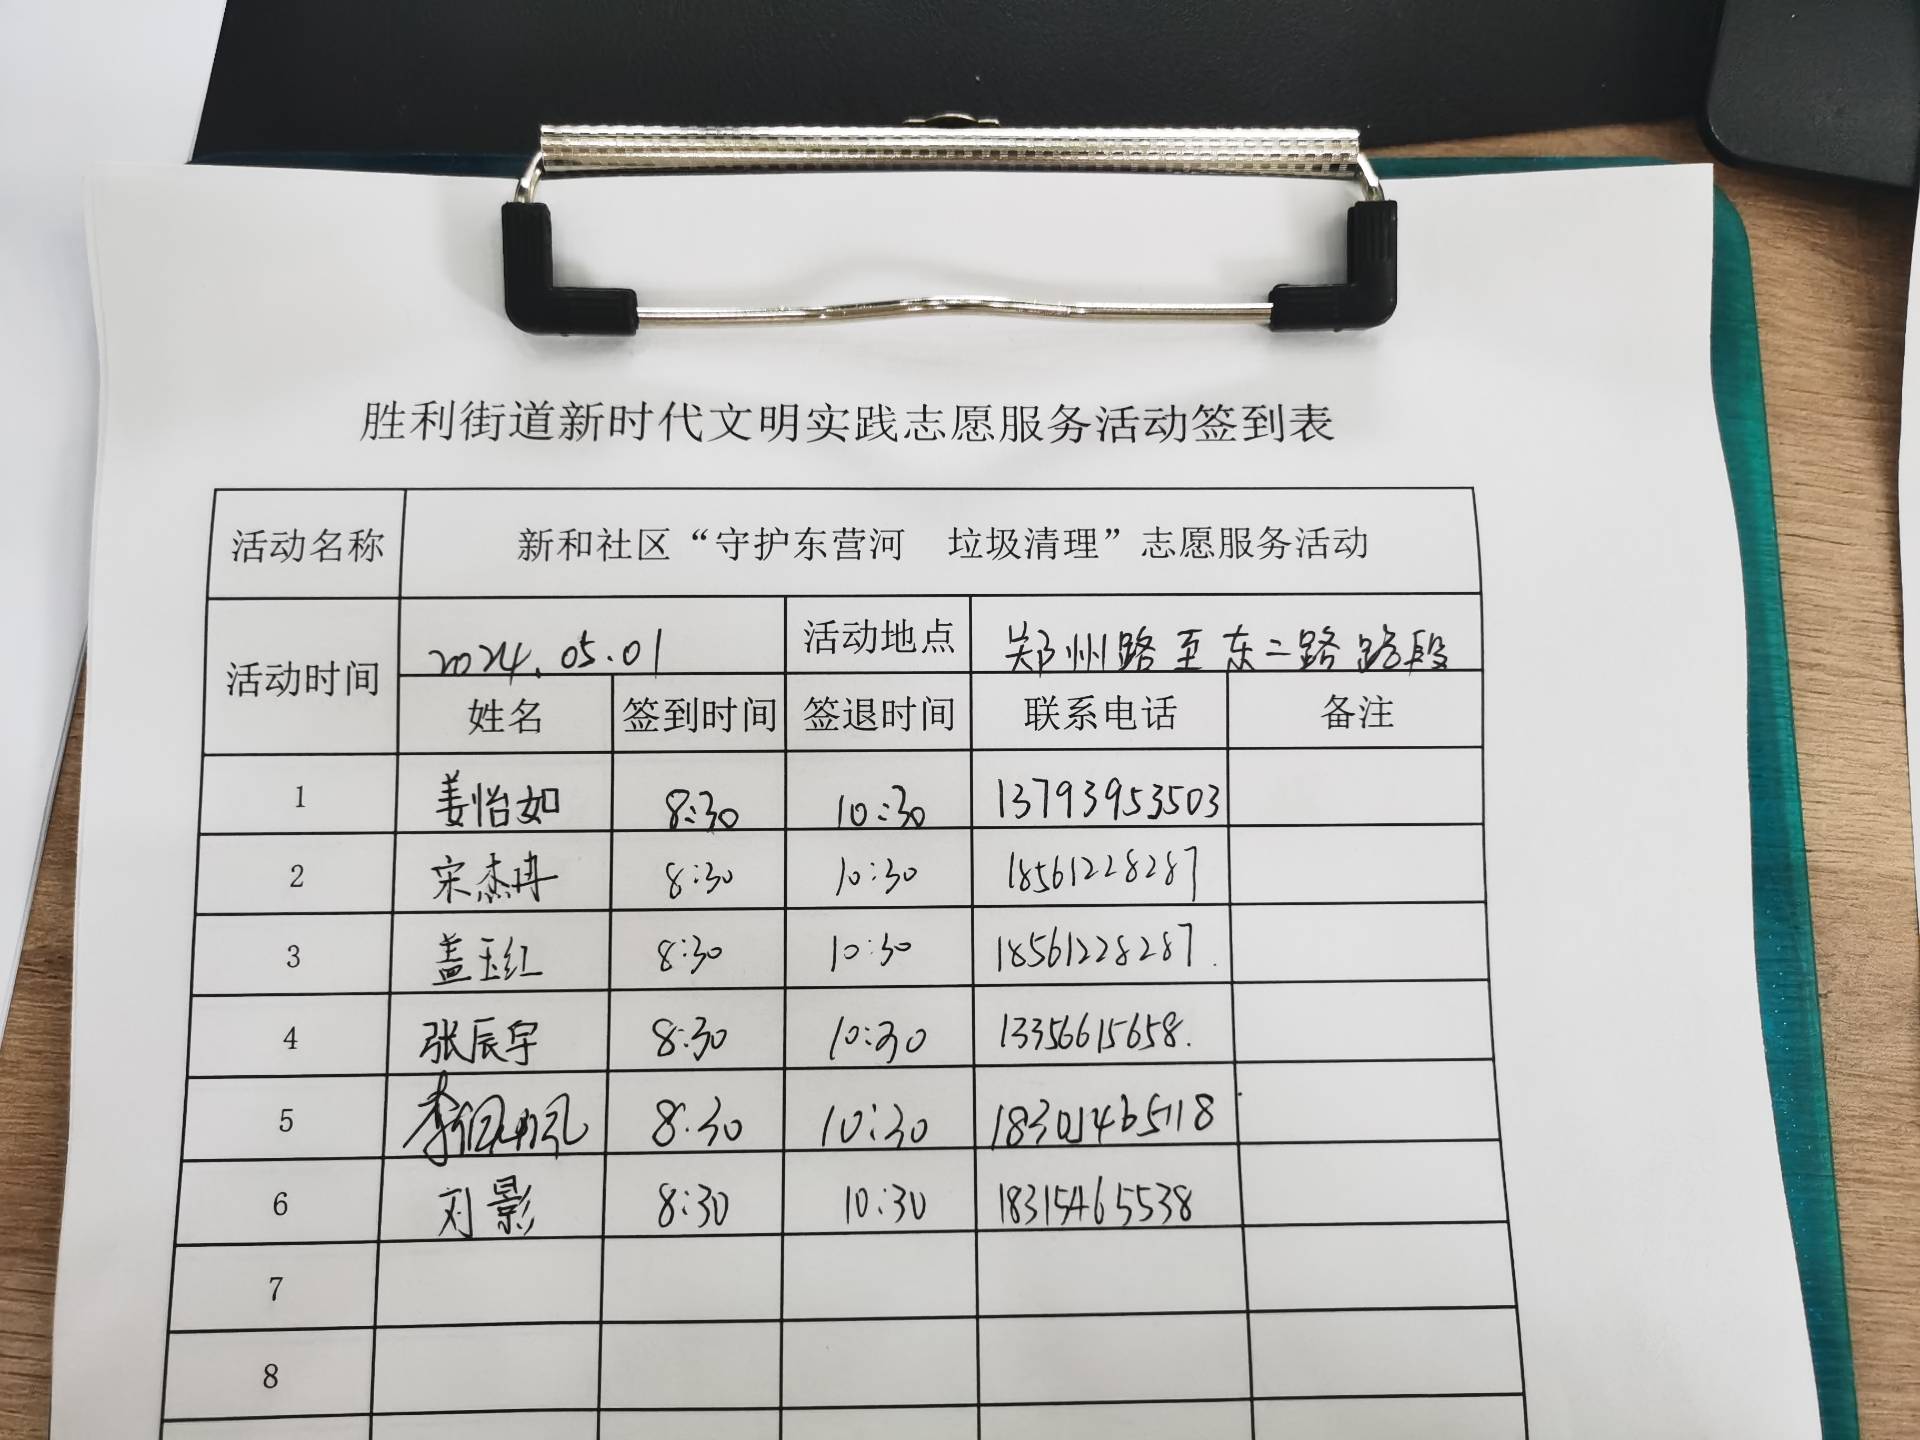 胜利街道新时代文明实践志愿服务活动签到表
活动名称 新和社区“守护东营河 垃圾清理”志愿服务活动
活动时间 2024.05.01 活动地点 郑州路至东二路路段
姓名 签到时间 签退时间 联系电话 备注
1 姜怡如 8:30 10:30 13793953503
2 宋杰冉 8:30 10:30 18561228287
3 盖玉红 8:30 10:30 18561228287.
4 张辰宇 8:30 10:30 13356615658.
5 8:30 10:30
6 刘影 8:30 10:30 18315465538
7
8